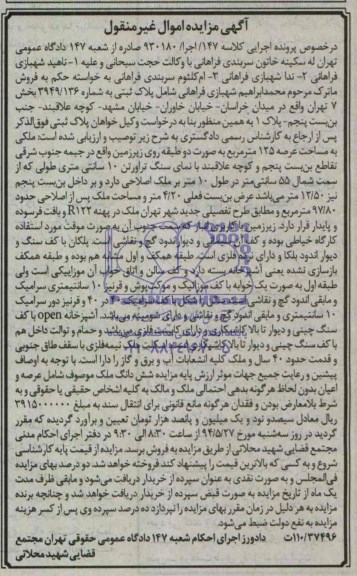 آگهی مزایده اموال غیرمنقول
درخصوص پرونده اجرایی کلاسه ۱۴۷/اجرا/ ۹۳۰۱۸۰ صادره از شعبه ۱۴۷ دادگاه عمومی
تهران له سکینه خاتون سربندی فراهانی با وکالت حجت سبحانی و علیه ۱- ناهید شهبازی
فراهانی ۲- ندا شهبازی فراهانی ۳- ام‌کلثوم سربندی فراهانی به خواسته حکم به فروش
ماترک مرحوم محمدابراهیم شهبازی فراهانی شامل پلاک ثبتی به شماره ۳۹۴۹/۱۳۶ بخش
۷ تهران واقع در میدان خراسان- خیابان خاوران- خیابان مشهد- کوچه علاقبند- جنب
بن‌بست پنجم- پلاک ۱ به همین منظور بنا به درخواست وکیل خواهان پلاک ثبتی فوق‌الذکر
پس از ارجاع به کارشناس رسمی دادگستری به شرح زیر توصیف و ارزیابی شده است: ملکی
به مساحت عرصه ۱۲۵ مترمربع به صورت دو طبقه روی زیرزمین واقع در جبهه جنوب شرقی
تقاطع بن‌بست پنجم و کوچه علاقبند با نمای سنگ تراورتن ۱۰ سانتی متری طولی که از
سمت شمال ۵۵ سانتی‌متر در طول ۱۰ متر بر ملک اصلاحی دارد و بر داخل بن‌بست پنجم
نیز ۱۲/۵۰ متر می‌باشد عرض بن‌بست فعلی ۴/۲۰ متر و مساحت ملک پس از اصلاحی حدود
۹۷/۸۰ مترمربع و مطابق طرح تفصیلی جدید شهر تهران ملک در پهنه R۱۲۲ و بافت فرسوده
و پایدار قرار دارد. زیرزمین با کاربری در سمت جنوب آن به صورت موقت مورد استفاده
کارگاه خیاطی بوده و کف و دیوار اندود گچ و نقاشی است. پلکان با کف سنگ و
دیوار اندود بلکا و دارای نرده فلزی است. طبقه همکف و اول مشابه هم بوده و طبقه همکف
بازسازی نشده یعنی آشپزخانه بسته دارد و کف سالن و اتاق خواب آن موزاییکی است ولی
طبقه اول به صورت یک خوابه با کف موزائیک و موکت‌پوش و قرنیز ۱۰ سانتیمتری سرامیک
و مابقی اندود گچ و نقاشی است. با کف سرامیک ۴۰ در ۴۰ و قرنیز دور سرامیک
۱۰ سانتیمتری و مابقی اندود گچ و نقاشی و دارای شومینه می‌باشد. آشپزخانه open با کف
سنگ چینی و دیوار تا بالا کاشیکاری و دارای کابینت فلزی می‌باشد و حمام و توالت داخل هم
با کف سنگ چینی و دیوار تا بالا کاشیکاری است. اسکلت ملک نیمه‌فلزی با سقف طاق جنوبی
و قدمت حدود ۴۰ سال و ملک کلیه انشعابات آب و برق و گاز را دارا است. با توجه به اوصاف
پیشین و رعایت جمیع جهات موثر ارزش پایه مزایده شش دانگ ملک موصوف شامل عرصه و
اعیان بدون لحاظ هر گونه بدهی احتمالی ملک و مالک به کلیه اشخاص حقیقی یا حقوقی و به
شرط بلامعارض بودن و فقدان هر گونه مانع قانونی برای انتقال سند به مبلغ ۳۹۱۵۰۰۰۰۰۰
ریال معادل سیصدو نود و یک میلیون و پانصد هزار تومان تعیین و برآورد گردیده که مقرر
گردید در روز سه‌شنبه مورخ ۹۴/۵/۲۷ از ساعت ۸:۳۰ الی ۹:۳۰ در دفتر اجرای احکام مدنی
مجتمع قضایی شهید محلاتی از طریق مزایده به فروش برسد. مزایده از قیمت پایه کارشناسی
شروع و به کسی که بالاترین قیمت را پیشنهاد کند فروخته خواهد شد. دو درصد بهای مزایده
فی‌المجلس و به صورت نقدی به عنوان سپرده از خریدار دریافت می‌شود و مابقی ظرف مدت
یک ماه از تاریخ مزایده به صورت قبض سپرده از خریدار دریافت خواهد شد و چنانچه برنده
مزایده به هر دلیل در زمان مقرر بهای مزایده را نپردازد ده درصد سپرده وی پس از کسر هزینه
مزایده به نفع دولت ضبط می‌شود.
۱۱۰/۳۷۴۹۶ت دادورز اجرای احکام شعبه ۱۴۷ دادگاه عمومی حقوقی تهران مجتمع
قضایی شهید محلاتی